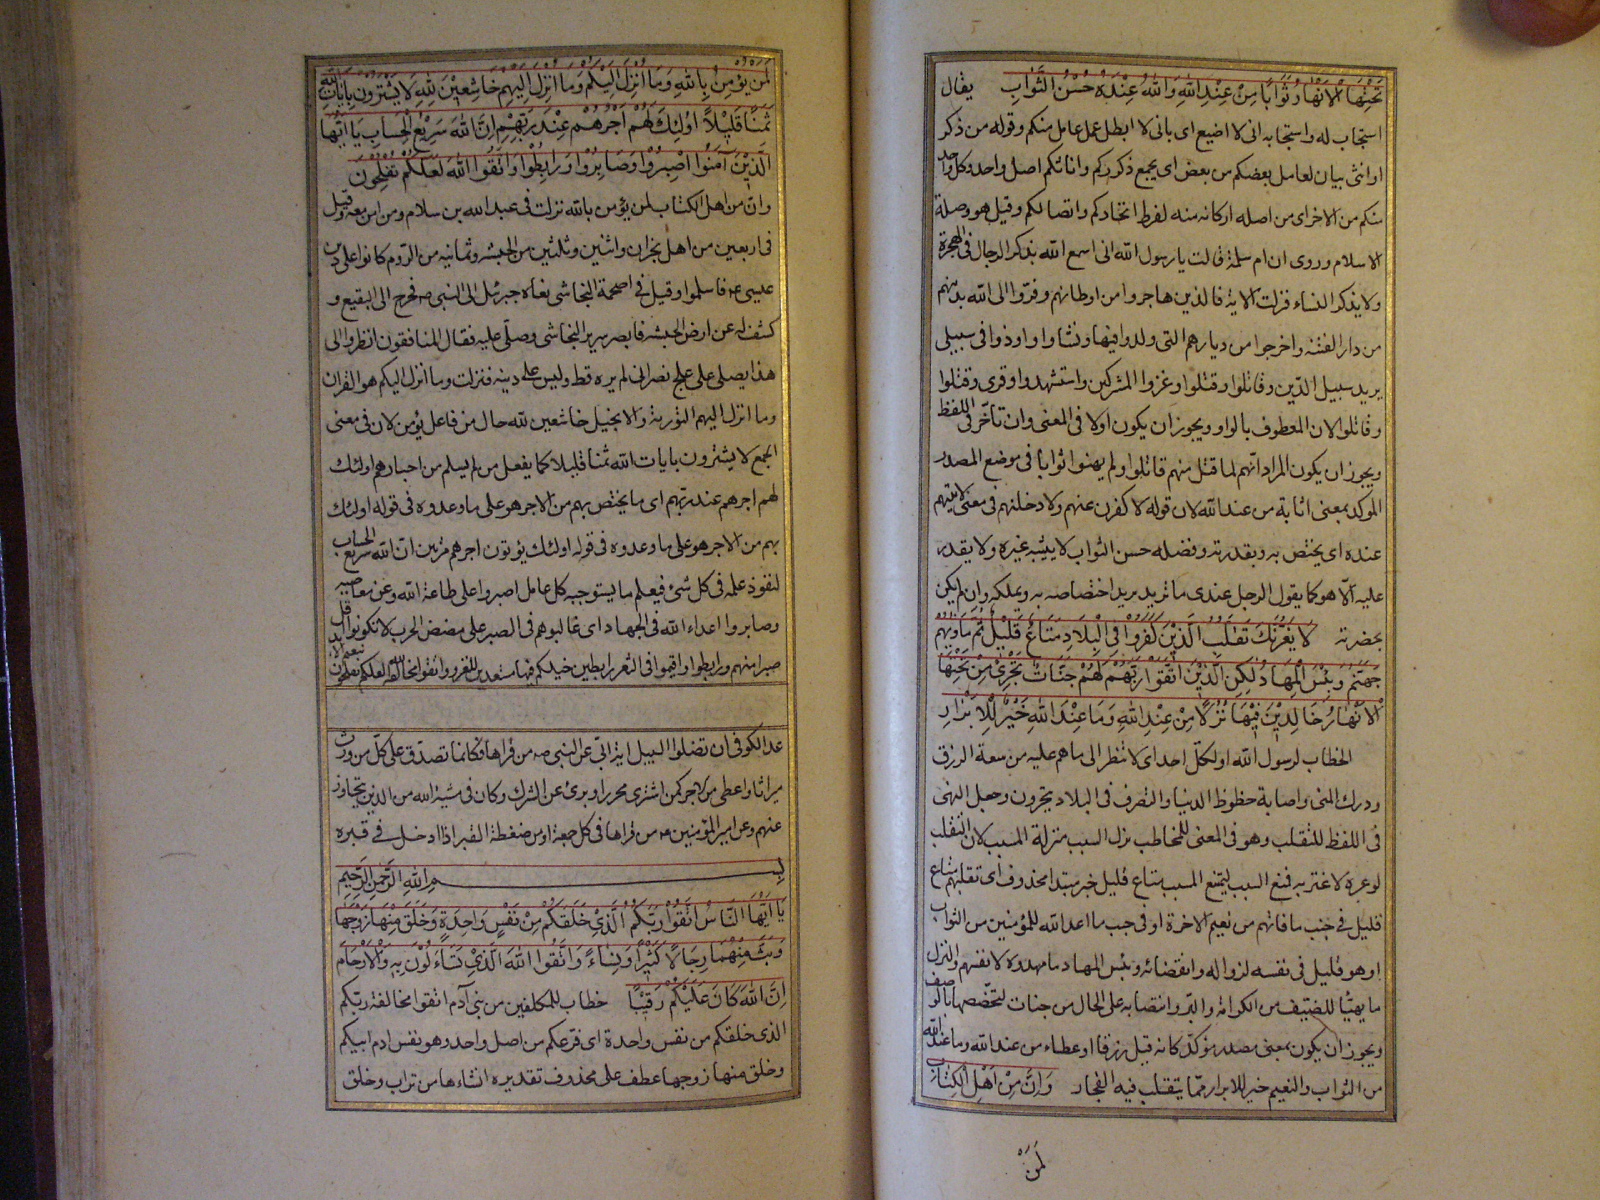 تَحْتِهَا الْاَنْهَارُ ثَوَابًا مِنْ عِنْدِ اللهِ وَاللهُ عِنْدَهُ حُسْنُ الثَّوَابِ يقال
استجاب له واستجابه انى لا اضيع اى بانى لا ابطل عمل عامل منكم وقوله من ذكر
او انثى بيان لعامل بعضكم من بعض اى يجمع ذكوركم واناثكم اصل واحد وكل واحد
منكم من الاخر اى من اصله او كانه منه لفرط اتحادكم واتصالكم وقيل هو وصلة
الاسلام وروى ان ام سلمة قالت يا رسول الله انى اسمع الله يذكر الرجال فى الهجرة
ولا يذكر النساء فنزلت الاية فالذين هاجروا من اوطانهم وفروا الى الله بدينهم
من دار الفتنة واخرجوا من ديارهم التى ولدوا فيها ونشاوا واوذوا فى سبيلى
يريد سبيل الدّين وقاتلوا وقتلوا وغزوا المشركين واستشهدوا وقرى وقتلوا
وقاتلوا لان المعطوف بالواو ويجوز ان يكون اولا فى المعنى وان تأخّر فى اللفظ
ويجوز ان يكون المراد انّهم لما قتل منهم قاتلوا ولم يهنوا ثوابا فى موضع المصدر
المؤكد بمعنى اثابة من عند الله لان قوله لاكفرن عنهم ولادخلنهم فى معنى لاثيبنهم
عنده اى يختص به وبقدرته وفضله حسن الثواب لا يثيبه غيره ولا يقدر
عليه الّا هو كما يقول الرجل عندى ما تريد يريد اختصاصه به وتملكه وان لم يكن
بحضرته لَا يَغُرَّنَّكَ تَقَلُّبُ الَّذِيْنَ كَفَرُوا فِي الْبِلَادِ مَتَاعٌ قَلِيْلٌ ثُمَّ مَاْوٰيهُمْ
جَهَنَّمُ وَبِئْسَ الْمِهَادُ لٰكِنِ الَّذِيْنَ اتَّقَوْا رَبَّهُمْ لَهُمْ جَنَّاتٌ تَجْرِيْ مِنْ تَحْتِهَا
الْاَنْهَارُ خَالِدِيْنَ فِيْهَا نُزُلًا مِنْ عِنْدِ اللهِ وَمَا عِنْدَ اللهِ خَيْرٌ لِلْاَبْرَارِ
الخطاب لرسول الله او لكل احد اى لا تنظر الى ما هم عليه من سعة الرزق
ودرك المنى واصابة حظوظ الدنيا والتصرف فى البلاد يتجرون وجعل النهى
فى اللفظ للتقلب وهو فى المعنى للمخاطب نزل السبب منزلة المسبب لان التقلب
لو غره لاغتر به فمنع السبب ليمتنع المسبب متاع قليل خبر مبتدا محذوف اى تقلبهم متاع
قليل فى جنب ما فاتهم من نعيم الاخرة او فى جنب ما اعد الله للمؤمنين من الثواب
او هو قليل فى نفسه لزواله وانقضائه وبئس المهاد ما مهدوه لانفسهم والنزل
ما يهيّا للضّيف من الكرامة والبر وانتصابه على الحال من جنات لتخصصها بالوصف
ويجوز ان يكون بمعنى مصدر مؤكد كانه قيل رزقا او عطاء من عند الله وما عند الله
من الثواب والنعيم خير للابرار ممّا يتقلب فيه الفجار وَاِنَّ مِنْ اَهْلِ الْكِتَابِ
لَمَنْ
لَمَنْ يُؤْمِنُ بِاللهِ وَمَا اُنْزِلَ اِلَيْكُمْ وَمَا اُنْزِلَ اِلَيْهِمْ خَاشِعِيْنَ لِلّٰهِ لَا يَشْتَرُوْنَ بِاٰيَاتِ اللهِ
ثَمَنًا قَلِيْلًا اُولٰئِكَ لَهُمْ اَجْرُهُمْ عِنْدَ رَبِّهِمْ اِنَّ اللهَ سَرِيْعُ الْحِسَابِ يَا اَيُّهَا
الَّذِيْنَ آمَنُوا اصْبِرُوْا وَصَابِرُوْا وَرَابِطُوْا وَاتَّقُوا اللهَ لَعَلَّكُمْ تُفْلِحُوْنَ
وان من اهل الكتاب لمن يؤمن بالله نزلت فى عبد الله بن سلام ومن امن معه وقيل
فى اربعين من اهل نجران واثنين وثلثين من الحبشة وثمانية من الروم كانوا على دين
عيسى ع فاسلموا وقيل فى اصحمة النجاشى نعاه جبرئيل الى النبى ص فخرج الى البقيع و
كشف له عن ارض الحبشة فابصر سرير النجاشى وصلّى عليه فقال المنافقون انظروا الى
هذا يصلى على علج نصرانى لم يره قط وليس على دينه فنزلت وما انزل اليكم هو القران
وما انزل اليهم التورية والانجيل خاشعين لله حال من فاعل يؤمن لان فى معنى
الجمع لا يشترون بايات الله ثمنا قليلا كما يفعل من لم يسلم من احبارهم اولئك
لهم اجرهم عند ربهم اى ما يختص بهم من الاجر هو على ما وعدوه فى قوله اولئك
بهم من الاجر هو على ما وعدوه فى قوله اولئك يؤتون اجرهم مرتين ان الله سريع الحساب
لنفوذ علمه فى كل شئ فيعلم ما يستوجبه كل عامل اصبروا على طاعة الله وعن معاصيه
وصابروا اعداء الله فى الجهاد اى غالبوهم فى الصبر على مضض الحرب لا تكونوا اقل
صبرا منهم ورابطوا واقيموا فى الثغر رابطين خيلكم فيها مستعدين للغزو واتقوا مخالفة الله لعلكم تفلحون
عد الكوفى ان تضلوا السبيل ابىّ عن النبى ص من قراها فكانما تصدّق على كلّ من ورث
ميراثا واعطى من الاجر كمن اشترى محررا وبرئ عن الشرك وكان فى مشية الله من الذين يتجاوز
عنهم وعن امير المؤمنين ع من قراها فى كل جمعة اومن ضغطة القبر اذا ادخل فى قبره
بِسْمِ اللهِ الرَّحْمٰنِ الرَّحِيْمِ
يَا اَيُّهَا النَّاسُ اتَّقُوْا رَبَّكُمُ الَّذِيْ خَلَقَكُمْ مِنْ نَفْسٍ وَاحِدَةٍ وَخَلَقَ مِنْهَا زَوْجَهَا
وَبَثَّ مِنْهُمَا رِجَالًا كَثِيْرًا وَنِسَاءً وَاتَّقُوا اللهَ الَّذِيْ تَسَاءَلُوْنَ بِهِ وَالْاَرْحَامَ
اِنَّ اللهَ كَانَ عَلَيْكُمْ رَقِيْبًا خطاب للمكلفين من بنى آدم اتقوا مخالفة ربّكم
الذى خلقكم من نفس واحدة اى فرّعكم من اصل واحد وهو نفس ادم ابيكم
وخلق منها زوجها عطف على محذوف تقديره انشاءها من تراب وخلق